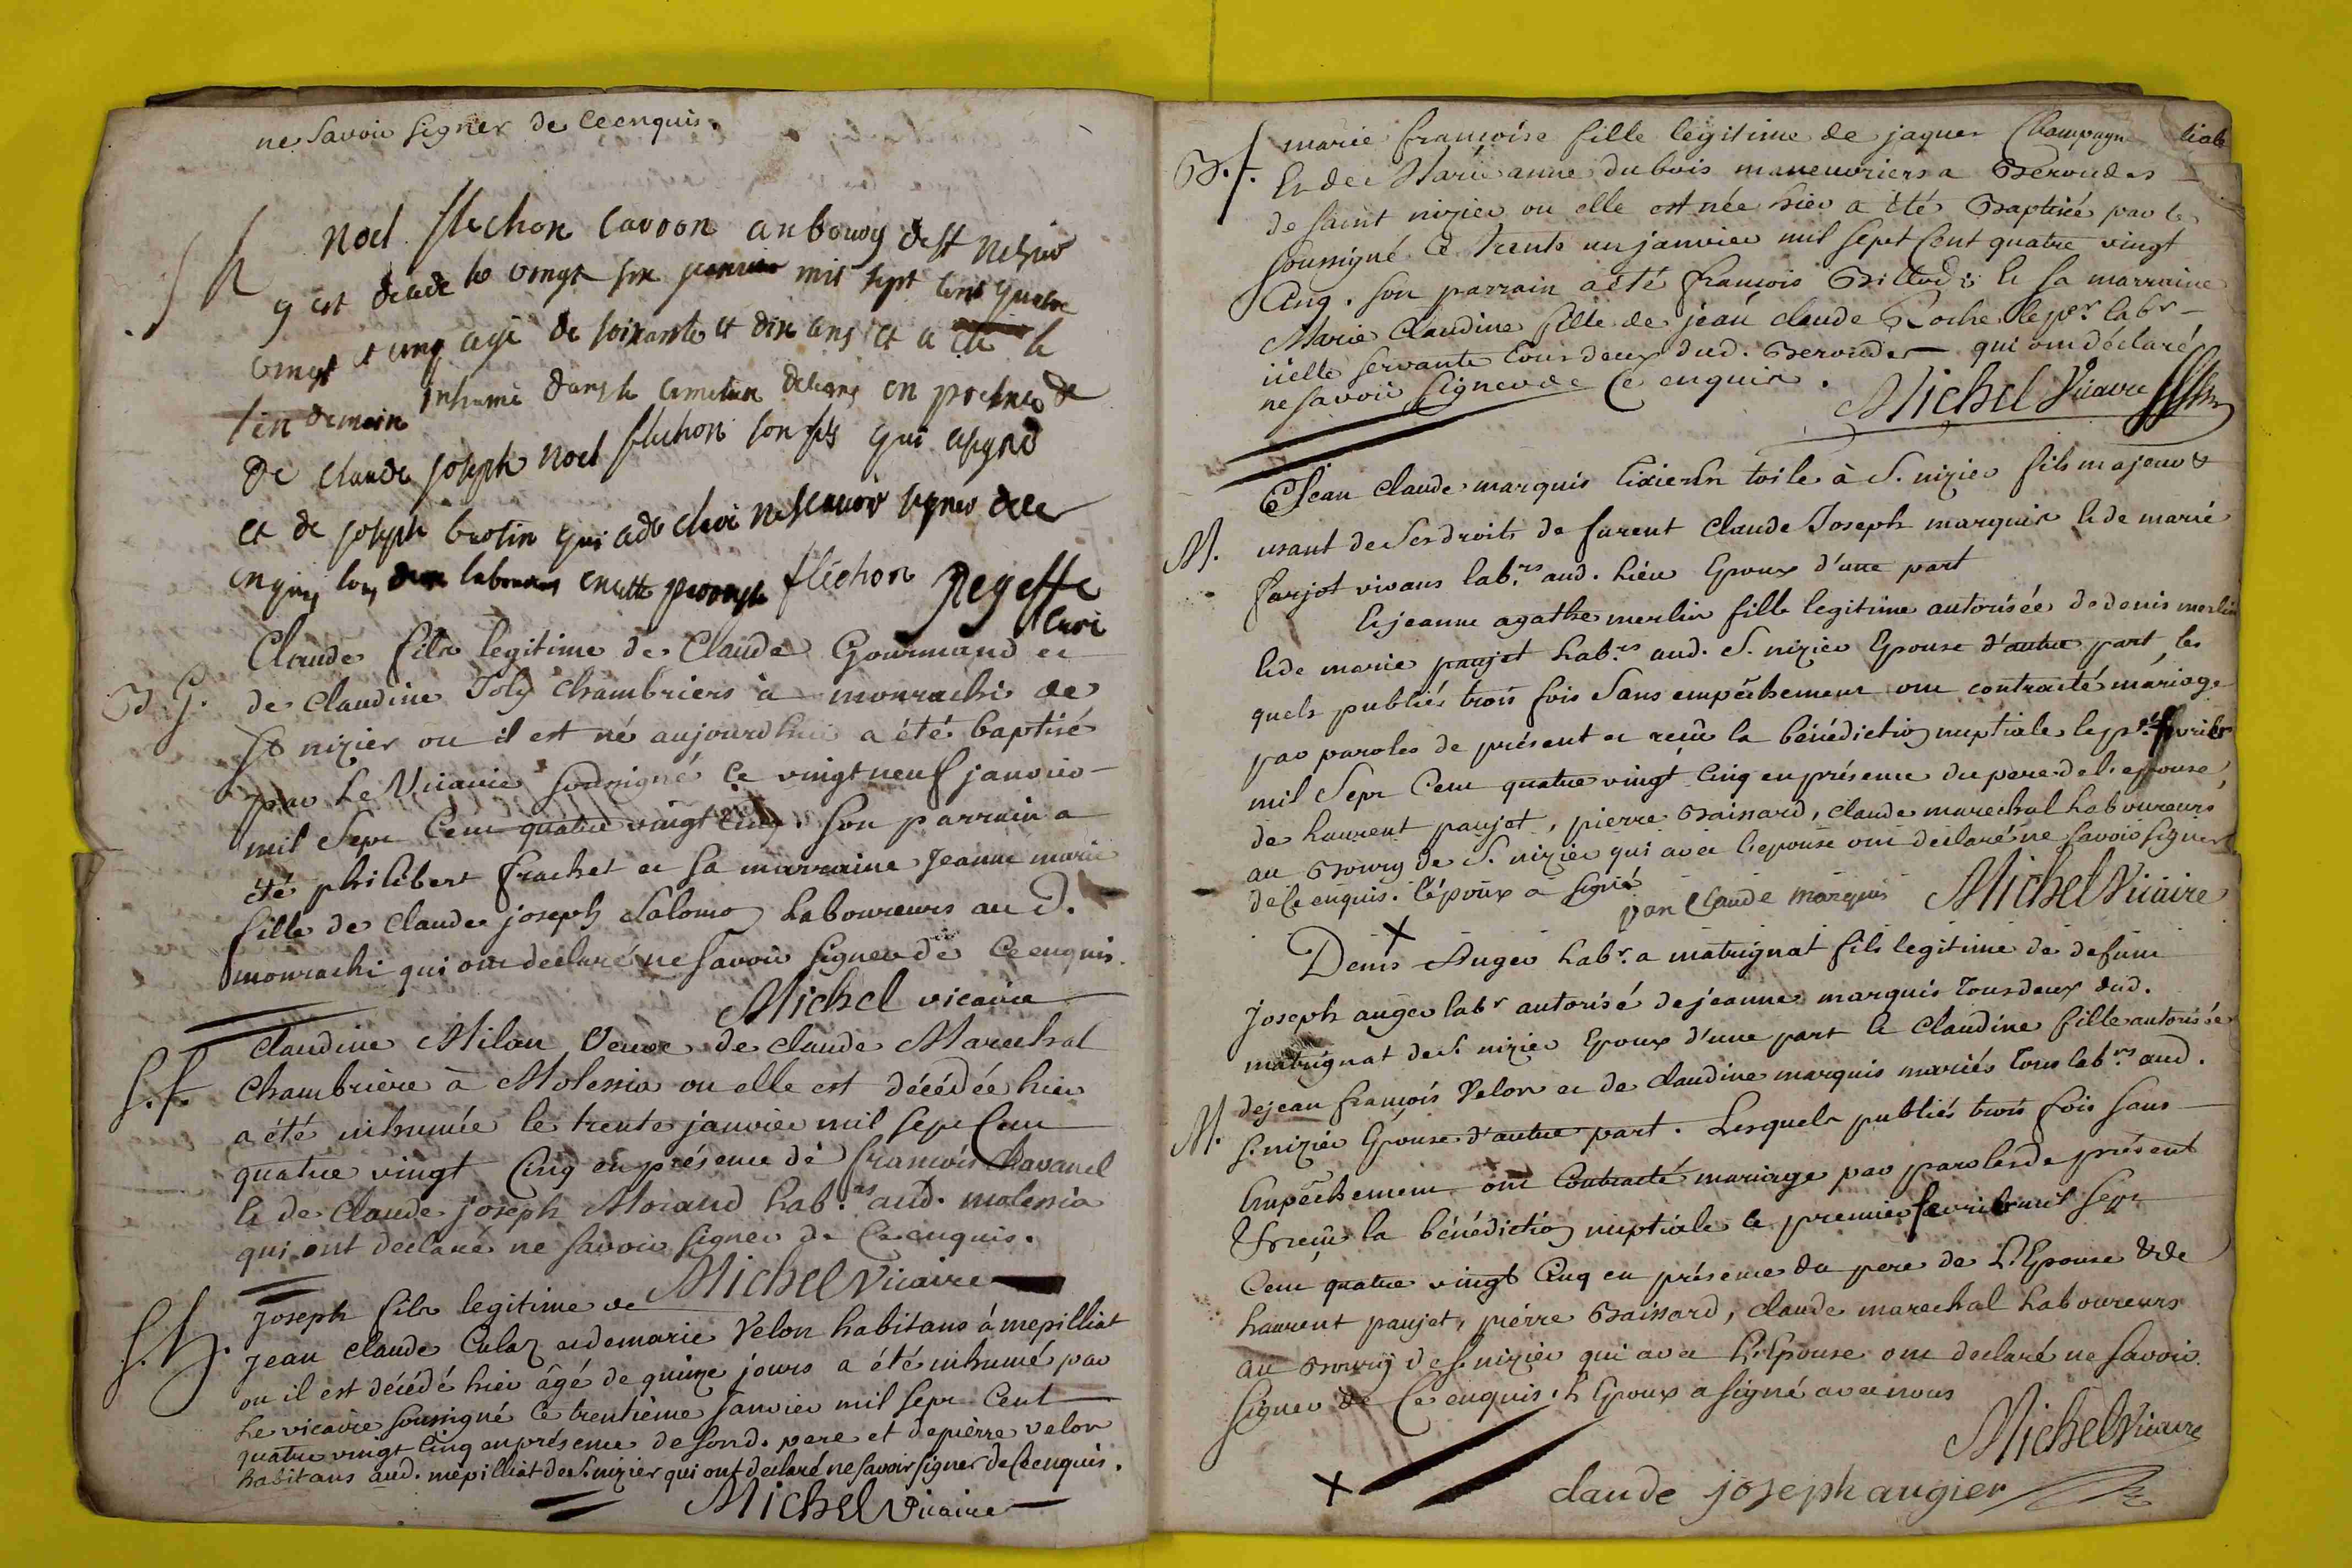 ne savoir signer de ce enquis.
S h
noel flechon lavoon au bourg de st nizier
y est décédé le vingt six janvier mil sept cent quatre
vingt et cinq agé de soixante et dix ans et a été le
lendemain inhumé dans le cimetiere en presence
de claude joseph noel flechon son fils qui a signé
et de joseph brotin qui a declaré ne scavoir signer de ce
enquis tous deux laboureurs en cette paroisse flechon
curé
B. G.
Claude fils legitime de Claude Gourmand et
de Claudine Joly chambriers à monrachi de
St nizier ou il est né aujourdhui a été baptisé
par Le Vicaire soussigné ce vingt neuf janvier
mil sept Cent quatre vingt cinq. Son parrain a
été philibert frachet et sa marraine Jeanne marie
fille de claude joseph Salomon Laboureurs au d.
monrachi qui ont declaré ne savoir signer de ce enquis.
Michel vicaire
S. f.
Claudine Milan Veuve de claude Marechal
Chambrière à Molessia ou elle est décédée hier
a été inhumée le trente janvier mil sept Cent
quatre vingt Cinq en présence de françois Chavanel
& de Claude joseph Morand hab.rs aud. molessia
qui ont declaré ne savoir signer de Ce enquis.
Michel Vicaire
S. h.
Joseph fils legitime de
Jean claude Culaz et de marie Velon habitans à mepilliat
ou il est décédé hier âgé de quinze jours a été inhumé par
Le vicaire soussigné ce trentième Janvier mil sept Cent
quatre vingt Cinq en présence de sond. pere et de pierre velon
habitans aud. mépilliat de S. nizier qui ont declaré ne savoir signer de Ce enquis.
Michel Vicaire
B. f.
marie françoise fille legitime de jaques Champagne
& de Marie anne dubois maneuvriers a Beroudes
de saint nizier ou elle est née hier a été Baptisée par le
soussigné Ce trente un janvier mil sept Cent quatre vingt
Cinq. son parrain a été françois Billoud & sa marraine
Marie Claudine fille de jean claude Roche le p.r lab.r
icelle servante tous deux dud. Beroudes qui ont déclaré
ne savoir signer de Ce enquis.
Michel Vicaire
M.
Jean Claude marquis tixier en toile à S. nizier fils majeur &
usant de ses droits de furent Claude Joseph marquis & de marie
farjot vivans lab.rs aud. Lieu Epoux d'une part
& jeanne agathe merlin fille legitime autorisée de denis merlin
& de marie paujet hab.rs aud. S. nizier Epouse d'autre part, les
quels publiés trois fois sans empêchement ont contracté mariage
par paroles de présent et reçû la bénédiction nuptiale le p.er fevrier
mil sept Cent quatre vingt Cinq en présence du pere de l'epouse,
de Laurent paujet, pierre Baissard, claude marechal Laboureurs
au Bourg de S. nizier qui avec l'epouse ont declaré ne savoir signer
de Ce enquis. l'époux a signé
jan Claude marquis Michel Vicaire
X
M.
Denis Auger hab.r a matrignat fils legitime de defunt
Joseph auger lab.r autorisé de jeanne marquis tous deux dud.
matrignat de S. nizier Epoux d'une part & Claudine fille autorisée
de jean françois Velon et de claudine marquis mariés tous lab.rs aud.
S. nizier Epouse d'autre part. Lesquels publiés trois fois sans
Empêchement ont Contracté mariage par paroles de présent
& reçu la bénédiction nuptiale le premier fevrier mil sept
Cent quatre vingt Cinq en présence du pere de L'Epouse & de
Laurent paujet, pierre Baissard, claude marechal Laboureurs
au Bourg de S. nizier qui avec L'Epouse ont declaré ne savoir
signer de Ce enquis. L'Epoux a signé avec nous
Michel Vicaire
X
claude joseph augier